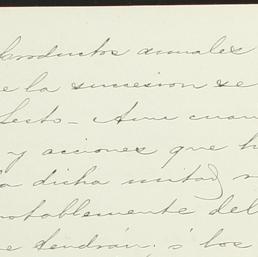 productos anuales
e la sucesion se
fecto - Aun cuan
y acciones que h
a dicha mitad
notablemente del
e tendrán; ó los